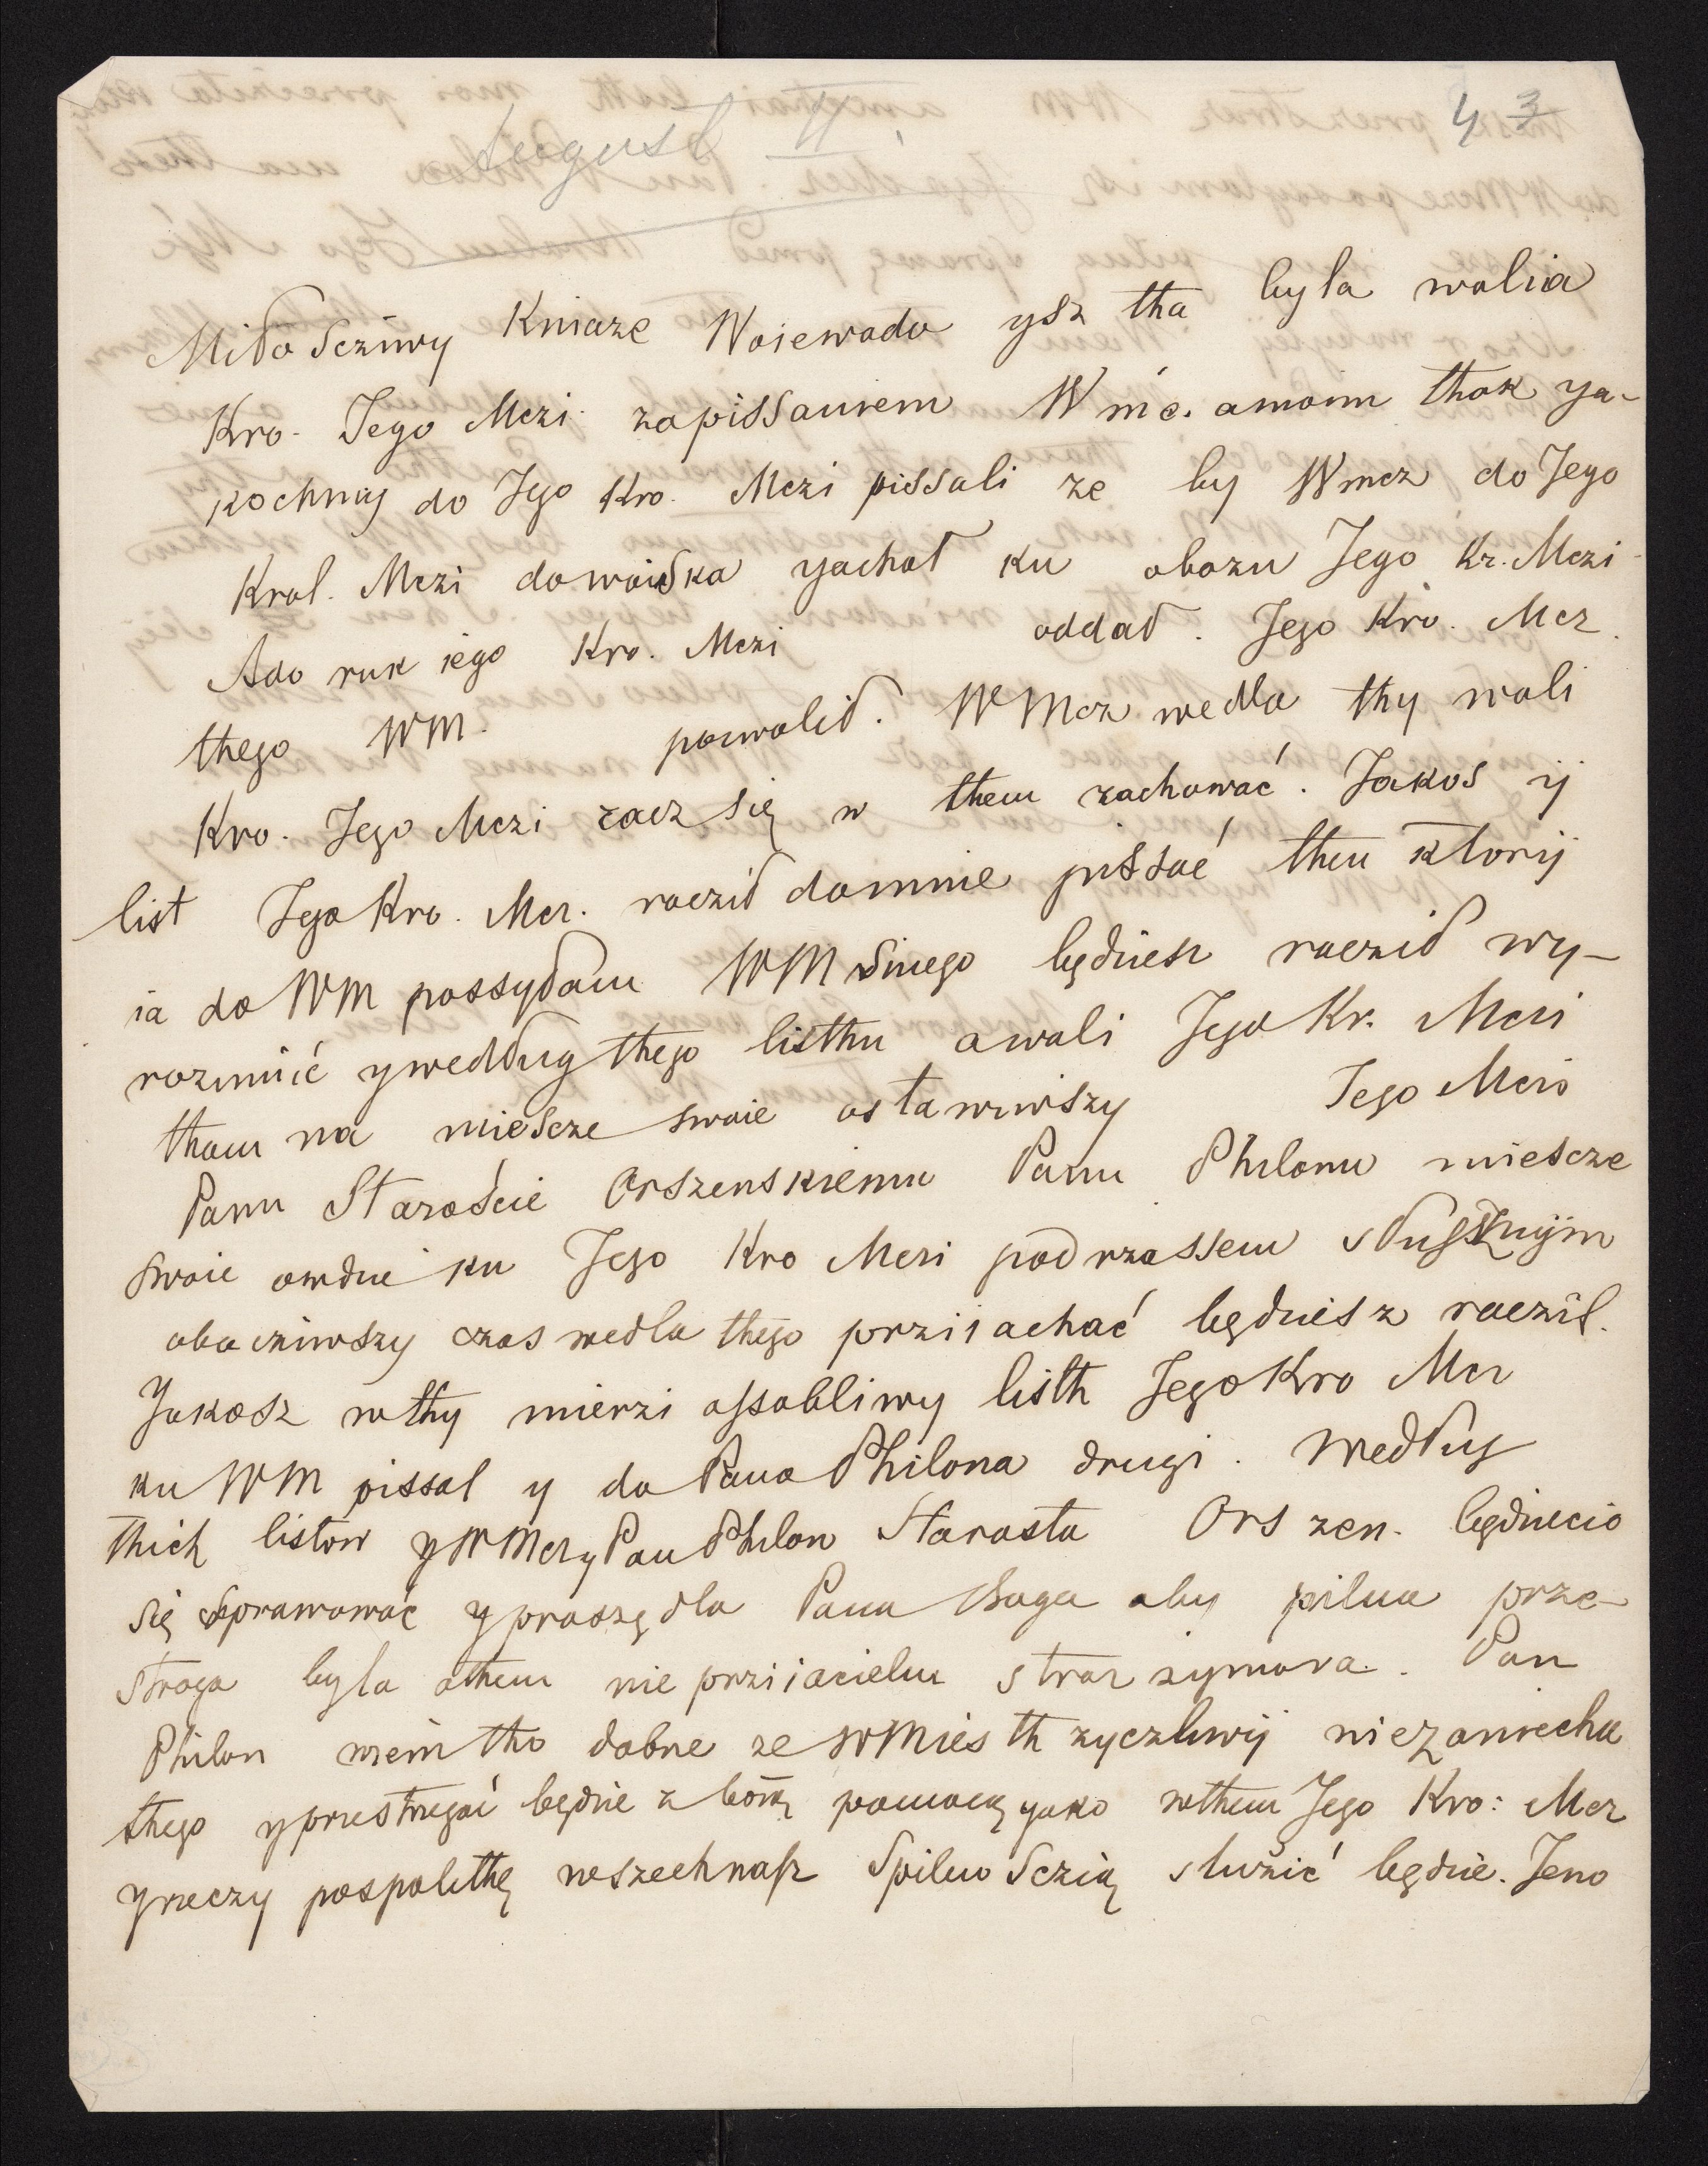 4 3
August II.
Miłoscziwy Kniaze Woiewodo ysz tha była wolia
Kro. Jego Mczi zapissaniem Wmć. amoim thak ya-
kochmy do Jego Kro. Mczi pissali ze by Wmcz do Jego
Krol. Mczi dowoiska yachał ku obozu Jego Kr. Mczi
Ado ruk iego Kro. Mczi oddał. Jego Kro. Mcz.
thego WM. pozwolił. WMcz wedla thy woli
Kro. Jego Mczi racz się w them zachować. Jakos ij
list Jego Kro. Mcz. racził domnie pissać then ktorij
ia do WM possyłam WM sniego będziesz racził wy-
rozmić ywedług thego listhu awoli Jego Kr. Mczi
tham na miescze swoie ostawiwszy Jego Mczi
Panu Starościе Orszenskiemu Panu Philonu miescze
swoie owdzie ku Jego Kro Mczi pod czassem słusznÿm
obacziwszy czas wedla thego prziiachać będziesz raczil.
Jakosz wthy mierzi ossobliwy listh Jego Kro Mcz
ku WM pissal y do Pana Philona drugi. Według
thich listow y WMcz y Pan Philon Starosta Orszen. będziecie
się sprawować y proszę dla Pana Boga aby pilna prze-
stroga była othem nieprziiacielu straz zymowa. Pan
Philon wiem tho dobrze ze WM iesth zyczliwij niezaniecha
thego yprzestrzegać będzie z bożą pomocą yako wthem Jego Kro: Mcz
yrzeczy pospolithę wszechnasz spilnosczią służić będzie. Jeno